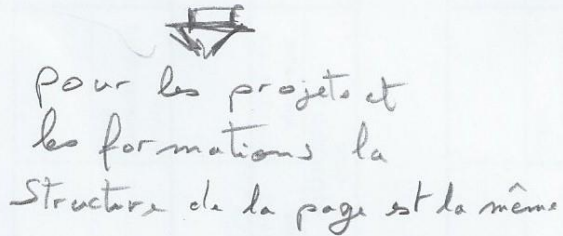 pour les projets et
les formations la
Structure de la page est la même